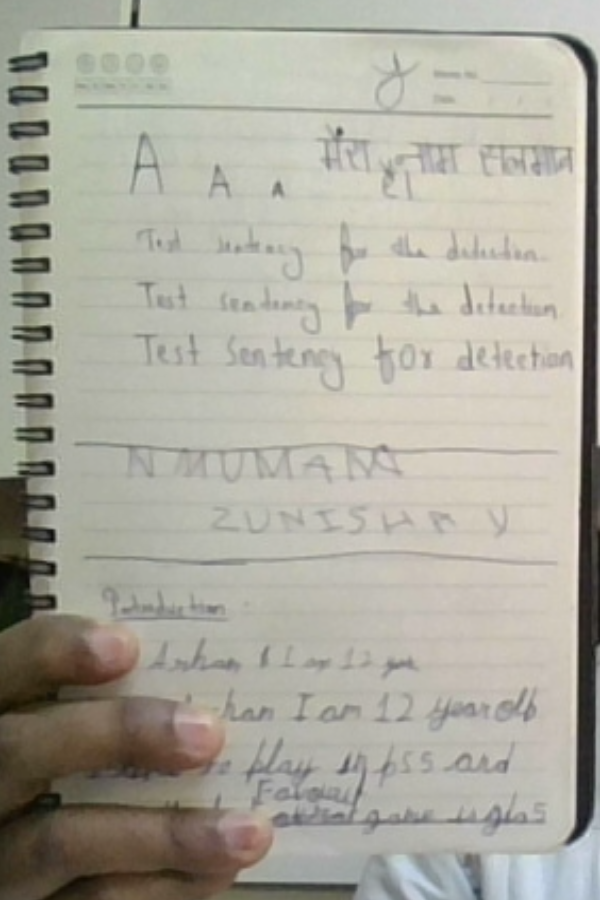 A A A मेरा नाम सलमान
है।
Test sentency for the detection.
Test sentency for the detection
Test Sentency for detection
NMUMAN
ZUNISHA
Introduction :
I am 12 year
han I am 12 year old
to play in ps5 and
game is